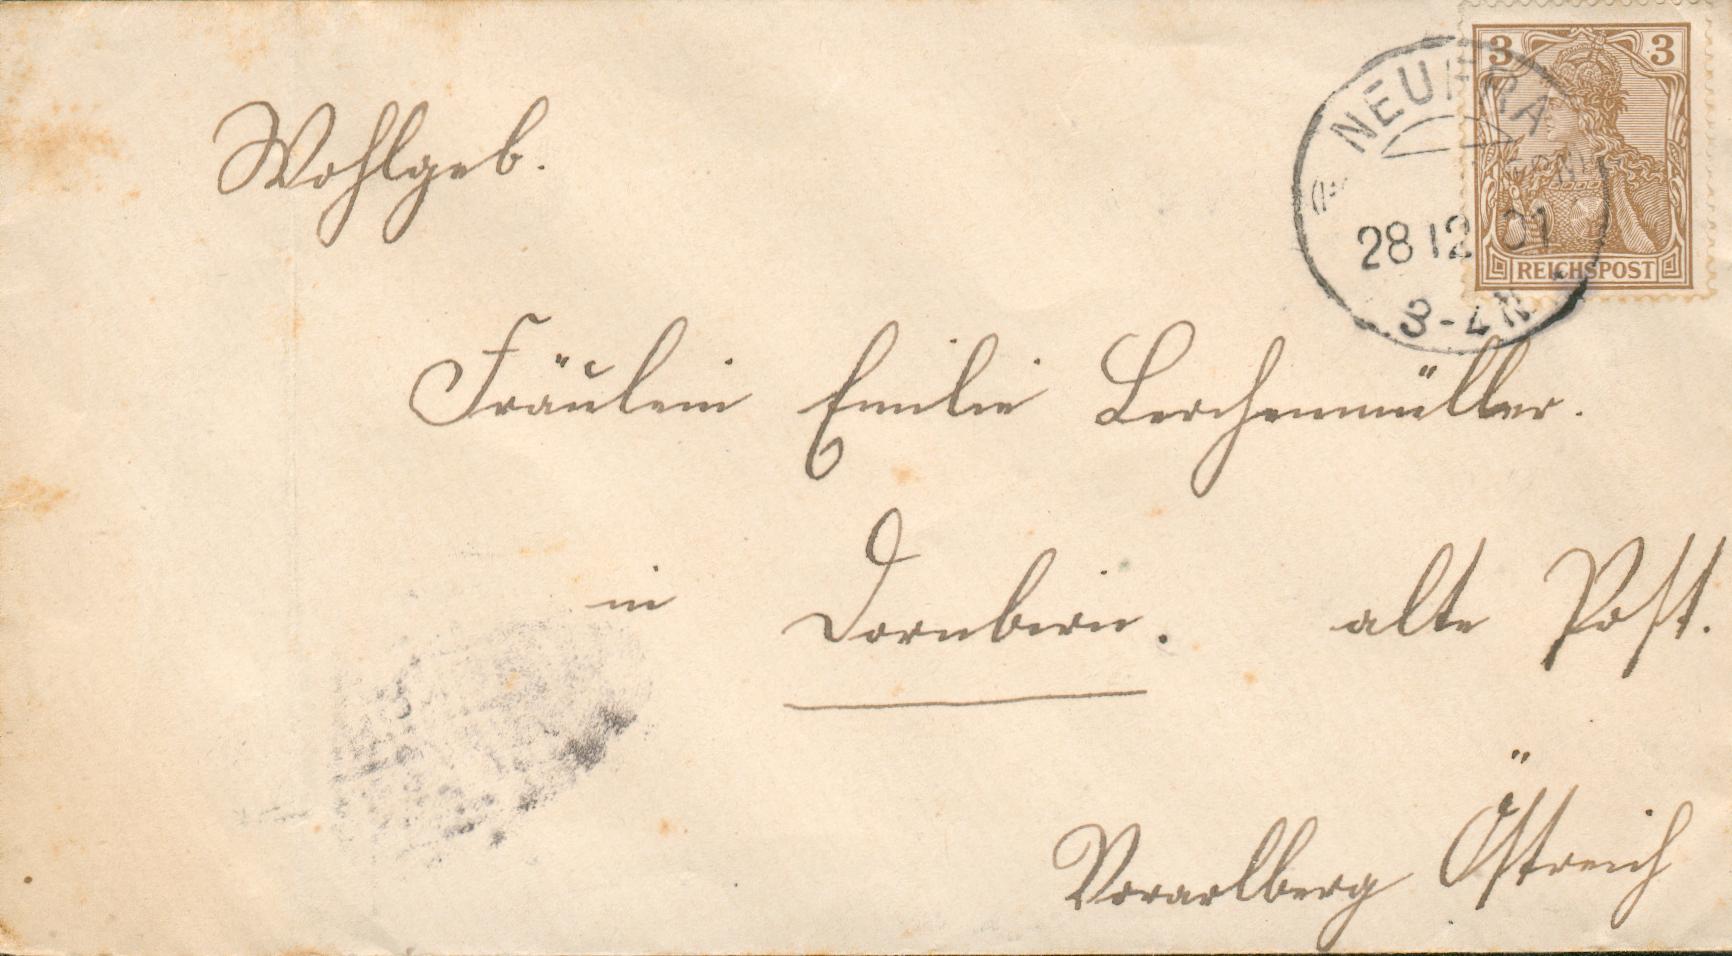 3 3
NEUFRA
28 12 01
REICHSPOST
3-4N
Wohlgeb.
Fräulein Emilie Lerchenmüller.
in Dornbirn. alte Post.
Vorarlberg Östreich